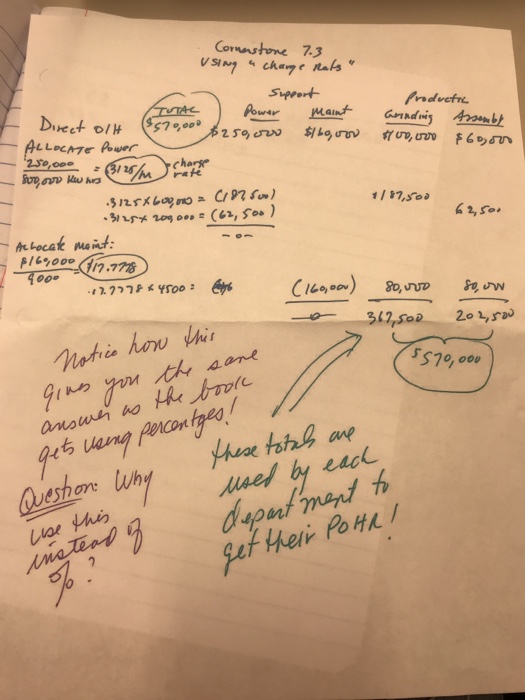 Cornerstone 7.3
Using "charge Rates"
Support Production
TOTAL Power Maint Grinding Assembly
Direct O/H $570,000 $250,000 $160,000 $100,000 $60,000
ALLOCATE Power
250,000 / 800,000 Kw hrs = .3125/ charge rate
.3125 X 600,000 = (187,500) 187,500
.3125 X 200,000 = (62,500) 62,500
-0-
Allocate Maint:
$160,000 / 9000 $17.7778
17.7778 x 4500 = (160,000) 80,000 80,000
0 367,500 202,500
$570,000
Notice how this
gives you the same
answer as the book
gets using percentges!
Question: Why
use this
instead of
%?
these totals are
used by each
department to
get their POHR!